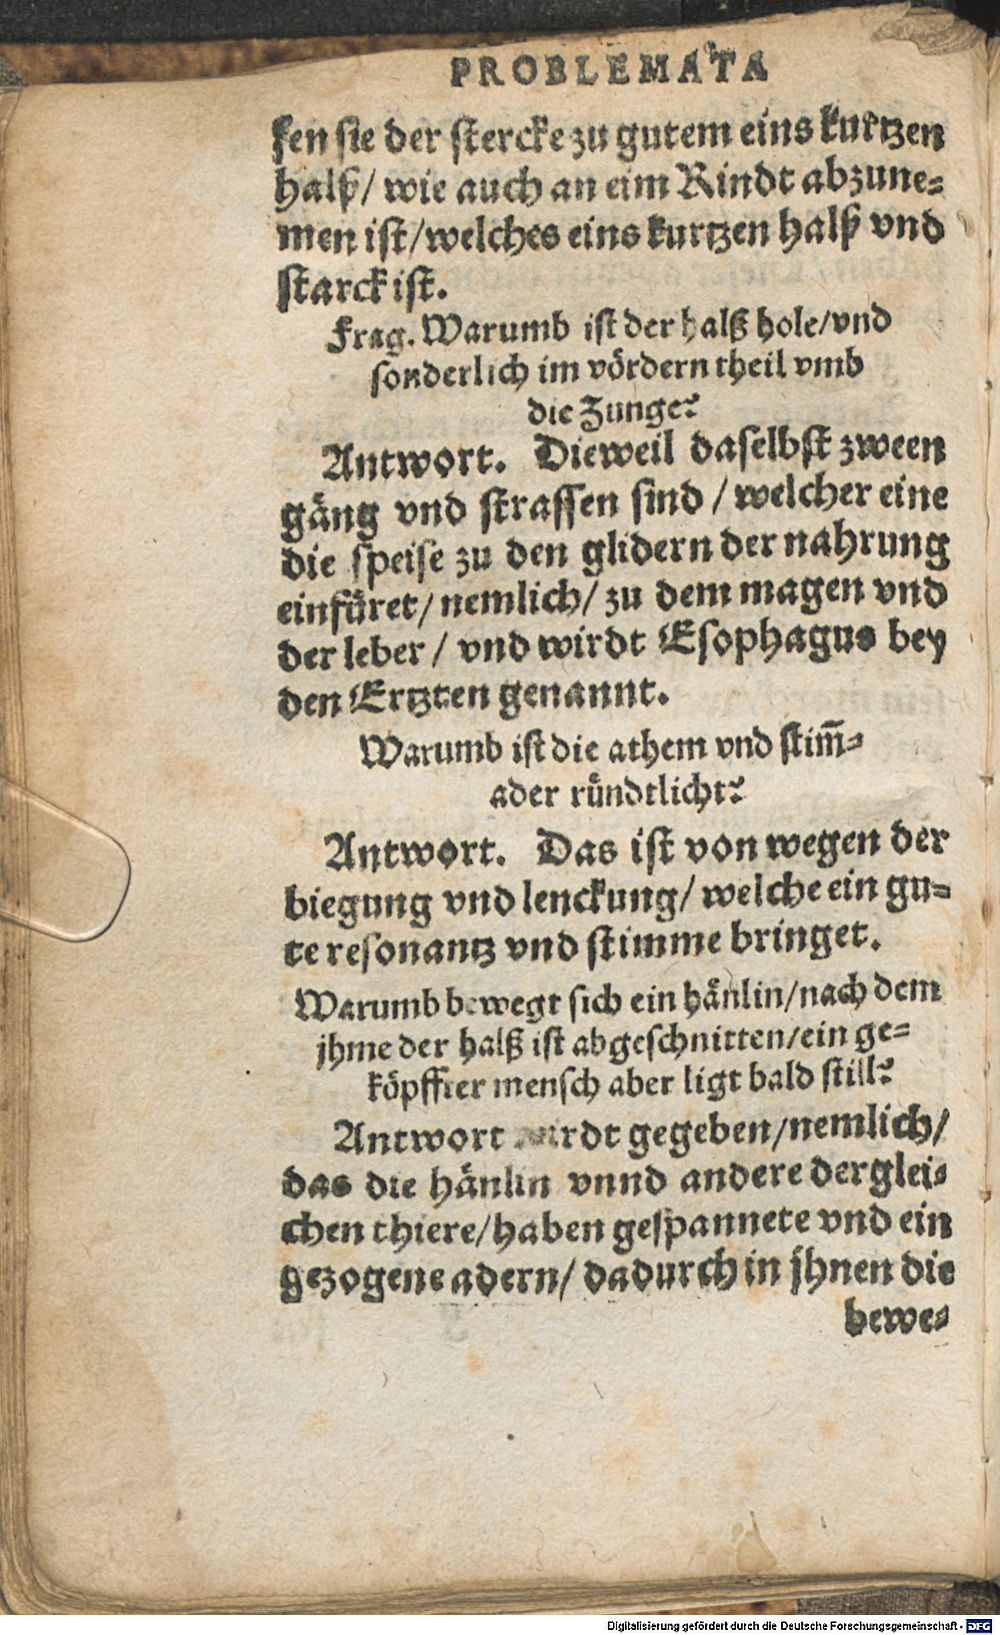 PROBLEMATA
fen sie der stercke zu gutem eins kurtzen
halß/ wie auch an eim Rindt abzune-
men ist/welches eins kurtzen halß vnd
starck ist.
Frag. Warumb ist der halß hole/vnd
sonderlich im vördern theil vmb
die Zunge?
Antwort. Dieweil daselbst zween
gäng vnd strassen sind / welcher eine
die speise zu den glidern der nahrung
einfüret/ nemlich/ zu dem magen vnd
der leber / vnd wirdt Esophagus bey
den Ertzten genannt.
Warumb ist die athem vnd stim̄-
ader ründtlicht?
Antwort. Das ist von wegen der
biegung vnd lenckung/ welche ein gu-
te resonantz vnd stimme bringet.
Warumb bewegt sich ein hänlin/nach dem
jhme der halß ist abgeschnitten/ein ge-
köpffter mensch aber ligt bald still?
Antwort wirdt gegeben/nemlich/
das die hänlin vnnd andere derglei-
chen thiere/haben gespannete vnd ein
gezogene adern/ dadurch in jhnen die
bewe-
Digitalisierung gefördert durch die Deutsche Forschungsgemeinschaft - DFG